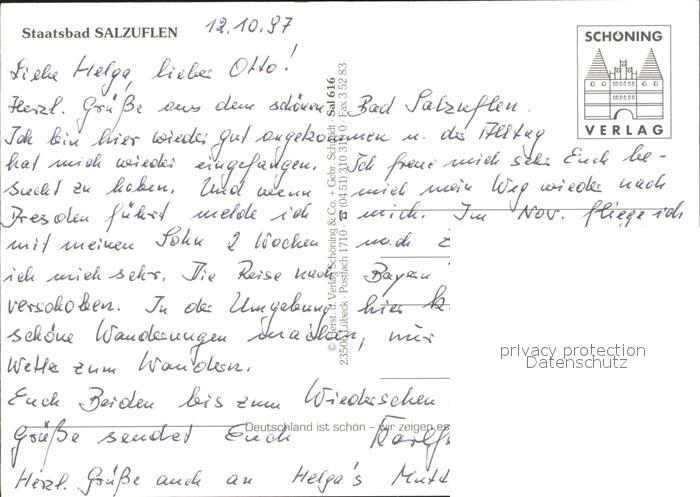 Staatsbad SALZUFLEN 12.10.97
SCHÖNING
VERLAG
Liebe Helga, lieber Otto!
Herzl. Grüße aus dem schönen Bad Salzuflen.
Ich bin hier wieder gut angekommen u. der Alltag
hat mich wieder eingefangen. Ich freue mich sehr Euch be-
sucht zu haben. Und wenn mich mein Weg wieder nach
Dresden führt melde ich mich. Im Nov. fliege ich
mit meinen Sohn 2 Wochen nach
ich mich sehr. Die Reise nach Bayen
verschoben. In der Umgebung hier
schöne Wanderungen machen, nur
Wetter zum Wandern.
Euch Beiden bis zum Wiedersehen
Grüße sendet Euch
Herzl. Grüße auch an Helga's Mutt
Deutschland ist schön – wir zeigen es
© Herst. u. Verlag Schöning & Co. + Gebr. Schmidt · Sal 616
23506 Lübeck · Postfach 1710 · ☎ (04 51) 310 31 0 · Fax 3 52 83
privacy protection
Datenschutz